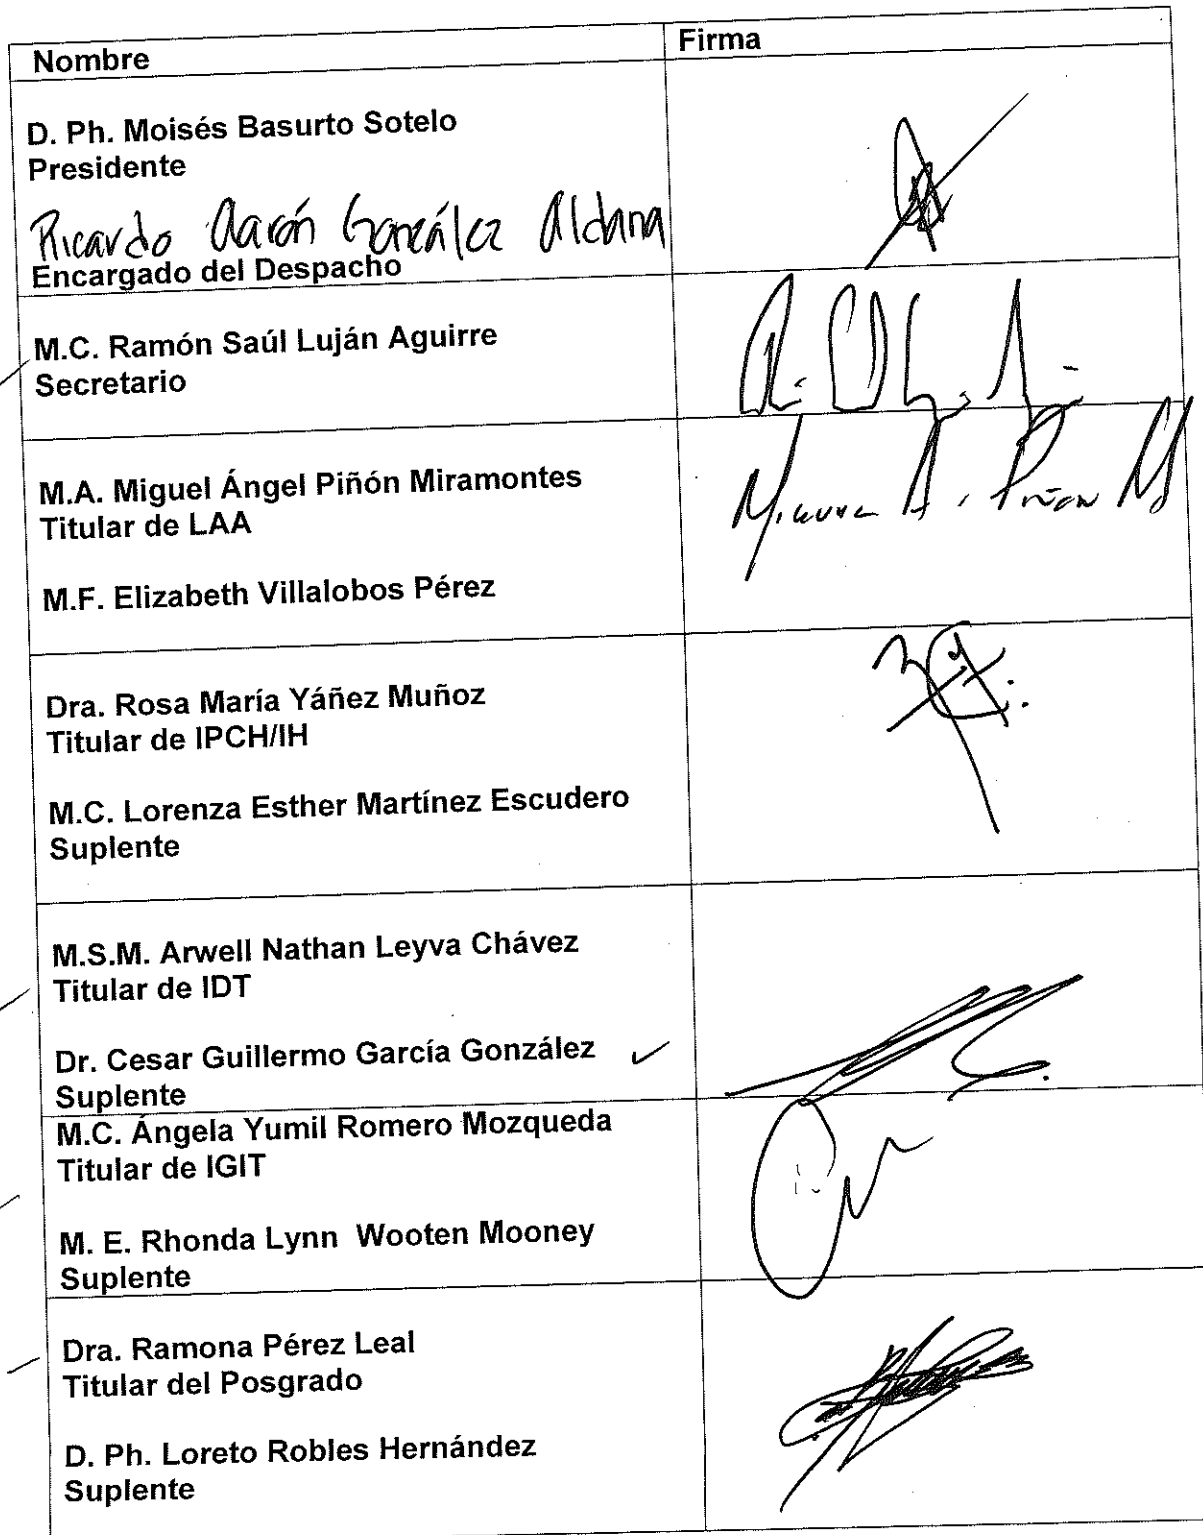 Nombre
Firma
D. Ph. Moisés Basurto Sotelo
Presidente
Ricardo Aarón González Aldana
Encargado del Despacho
M.C. Ramón Saúl Luján Aguirre
Secretario
M.A. Miguel Ángel Piñón Miramontes
Titular de LAA
Miguel A. Piñón M
M.F. Elizabeth Villalobos Pérez
Dra. Rosa María Yáñez Muñoz
Titular de IPCH/IH
M.C. Lorenza Esther Martínez Escudero
Suplente
M.S.M. Arwell Nathan Leyva Chávez
Titular de IDT
Dr. Cesar Guillermo García González
Suplente
M.C. Ángela Yumil Romero Mozqueda
Titular de IGIT
M. E. Rhonda Lynn Wooten Mooney
Suplente
Dra. Ramona Pérez Leal
Titular del Posgrado
D. Ph. Loreto Robles Hernández
Suplente